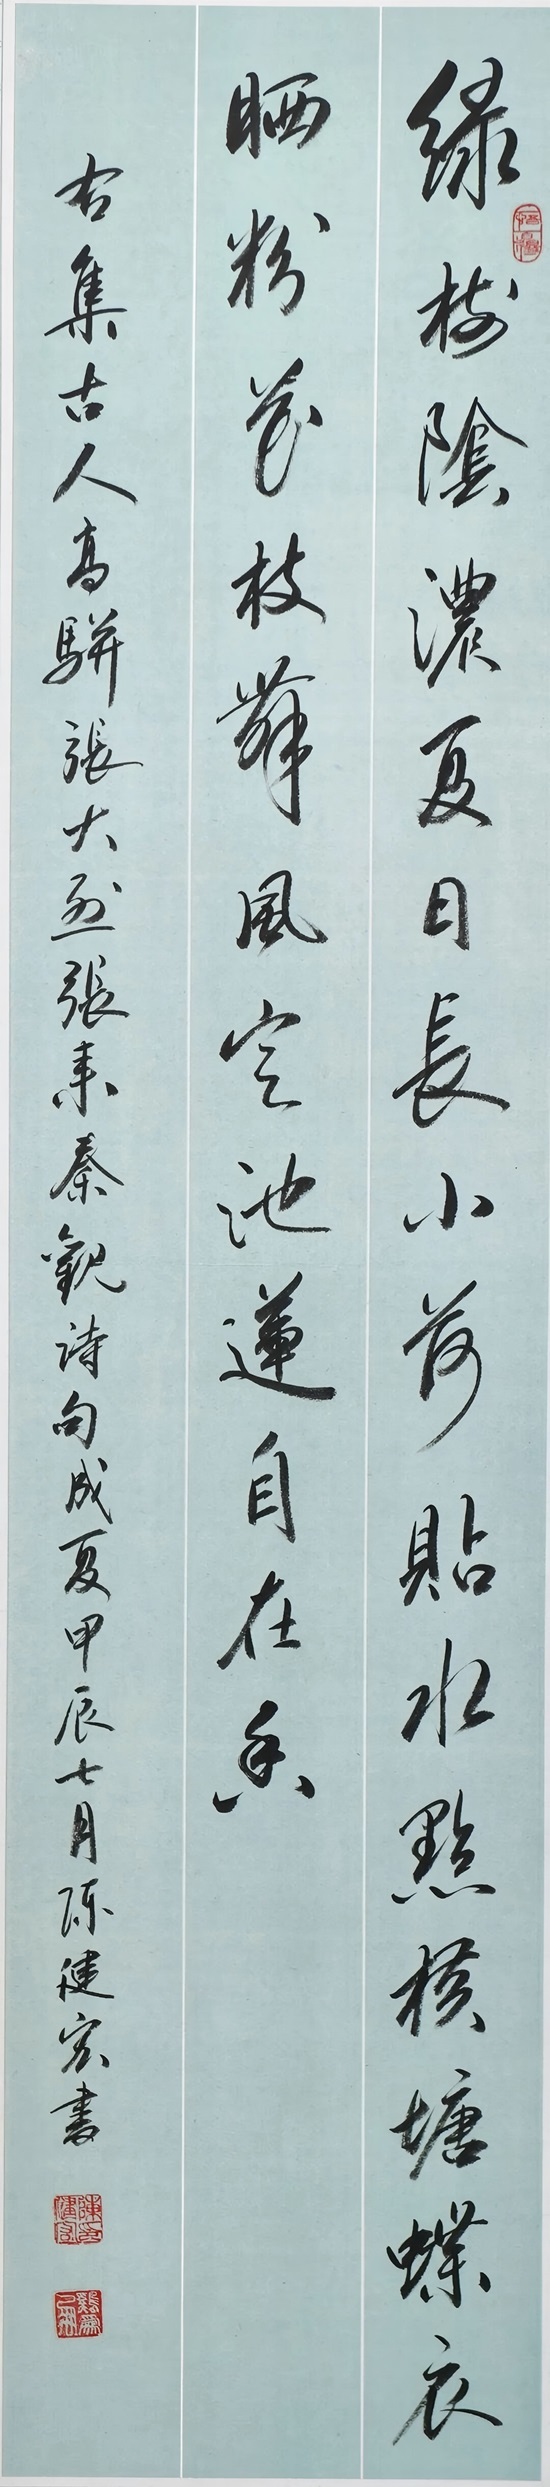 绿树陰濃夏日長小荷貼水點横塘蝶衣
晒粉花枝舞風定池蓮自在香
右集古人高駢張大烈張耒秦觀詩句成夏甲辰七月陈健宏書